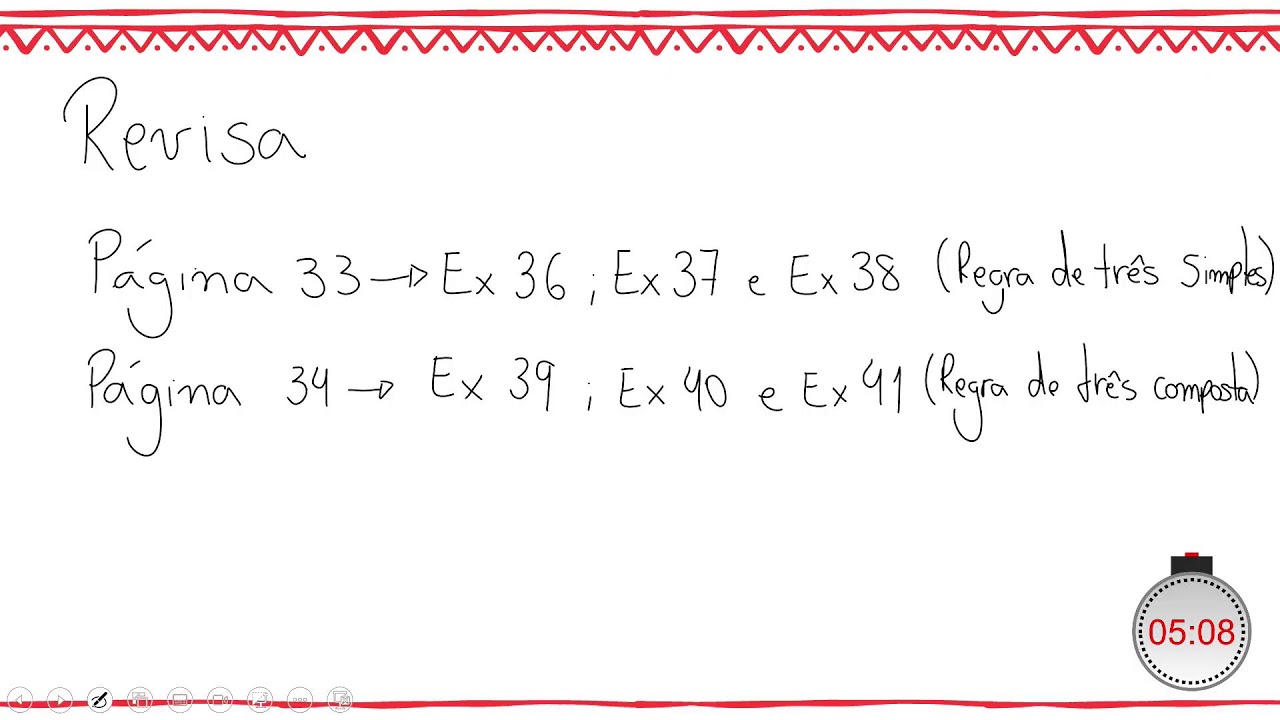 Revisa
Página 33 → Ex 36 ; Ex 37 e Ex 38 (Regra de três Simples)
Página 34 → Ex 39 ; Ex 40 e Ex 41 (Regra de três composta)
05:08